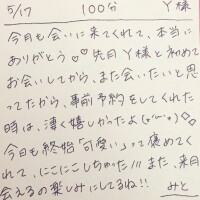 5/17 100分 Y様
今日も会いに来てくれて、本当に
ありがとう♡♡ 先月Y様と初めて
お会いしてから、また会いたいと思
ってたから、事前予約をしてくれた
時は、凄く嬉しかったよ(о´ω`о)◇◇
今日も終始「可愛い」って褒めてく
れて、にこにこしちゃった/// また、来月
会えるの楽しみにしてるね!!
みと